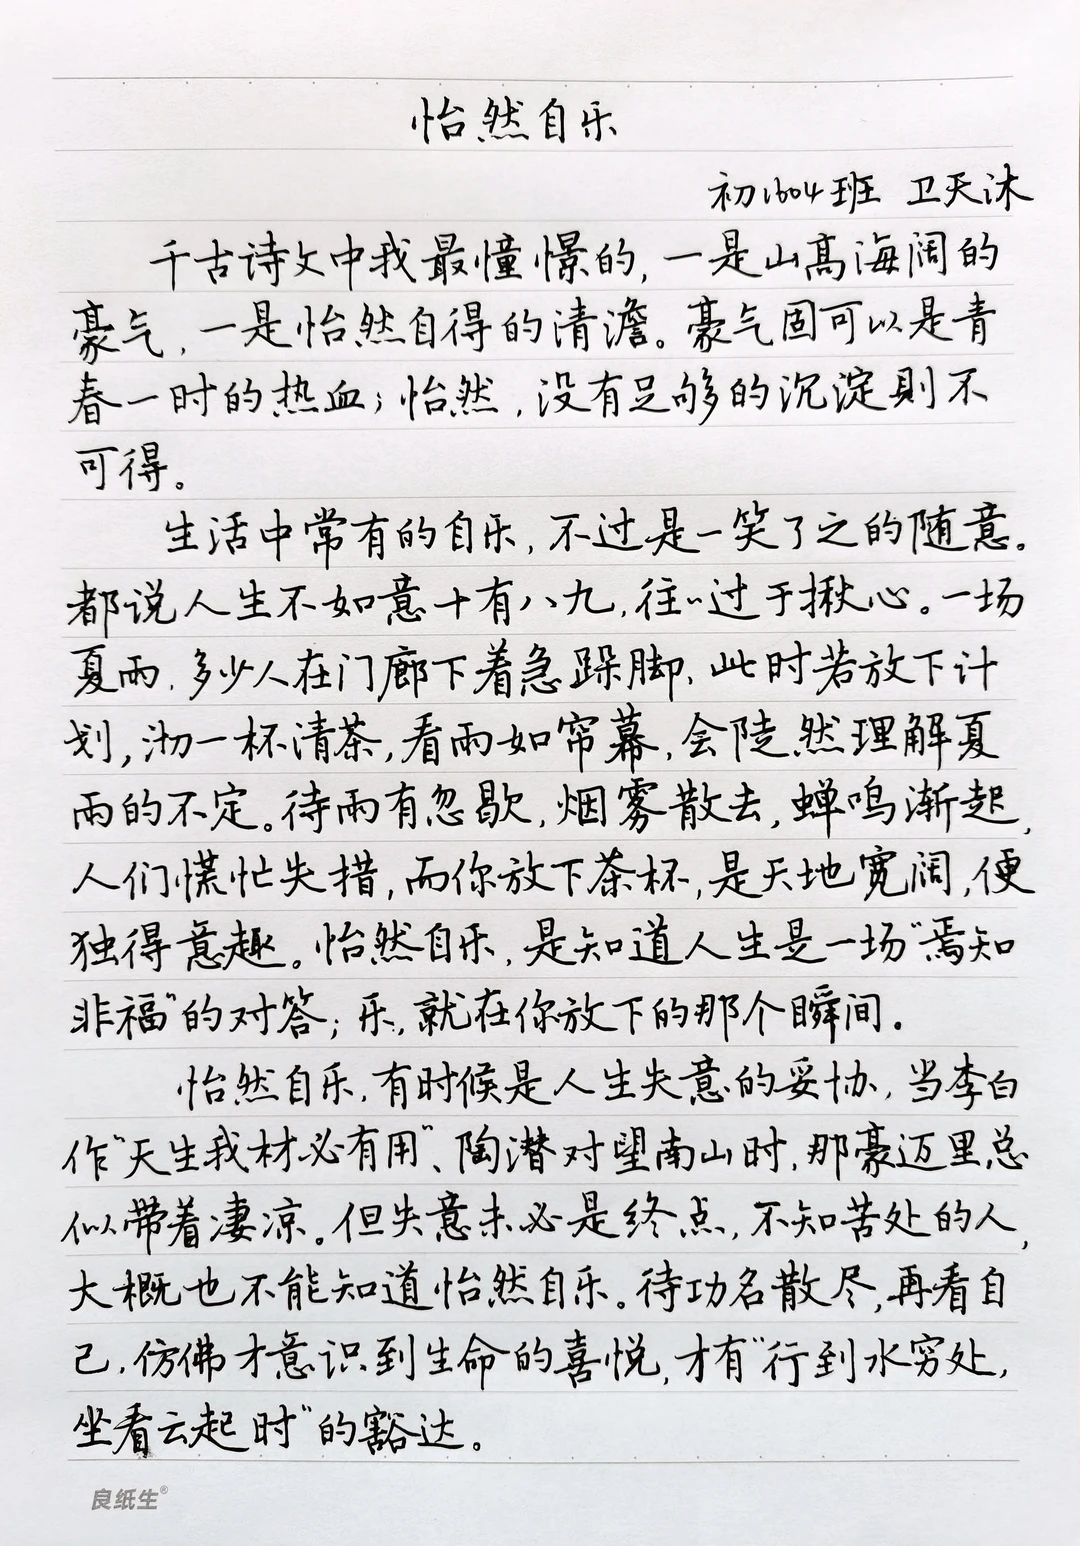 怡然自乐
初1604班 卫天沐
千古诗文中我最憧憬的，一是山高海阔的
豪气，一是怡然自得的清澹。豪气固可以是青
春一时的热血；怡然，没有足够的沉淀则不
可得。
生活中常有的自乐，不过是一笑了之的随意。
都说人生不如意十有八九，往〃过于揪心。一场
夏雨，多少人在门廊下着急跺脚，此时若放下计
划，沏一杯清茶，看雨如帘幕，会陡然理解夏
雨的不定。待雨有忽歇，烟雾散去，蝉鸣渐起，
人们慌忙失措，而你放下茶杯，是天地宽阔，便
独得意趣。怡然自乐，是知道人生是一场“焉知
非福”的对答；乐，就在你放下的那个瞬间。
怡然自乐，有时候是人生失意的妥协，当李白
作“天生我材必有用”、陶潜对望南山时，那豪迈里总
似带着凄凉。但失意未必是终点，不知苦处的人，
大概也不能知道怡然自乐。待功名散尽，再看自
己，仿佛才意识到生命的喜悦，才有“行到水穷处，
坐看云起时”的豁达。
良纸生®